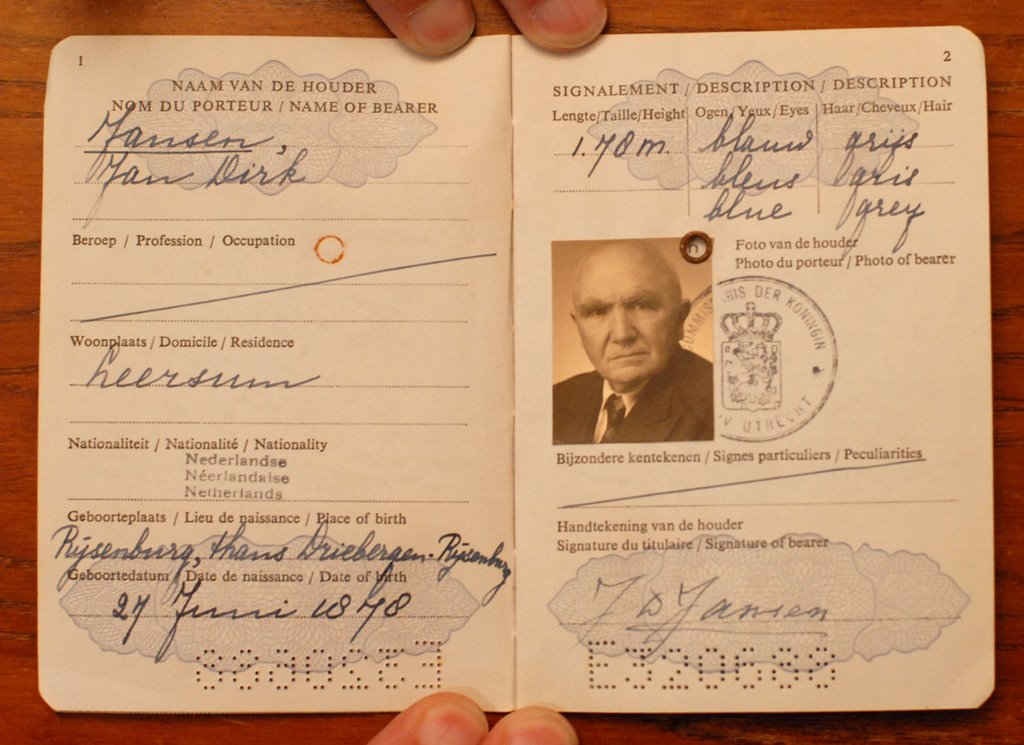 1
NAAM VAN DE HOUDER
NOM DU PORTEUR / NAME OF BEARER
Jansen,
Jan Dirk
Beroep / Profession / Occupation
Woonplaats / Domicile / Residence
Leersum
Nationaliteit / Nationalité / Nationality
Nederlandse
Néerlandaise
Netherlands
Geboorteplaats / Lieu de naissance / Place of birth
Rijsenburg, thans Driebergen-Rijsenburg
Geboortedatum / Date de naissance / Date of birth
27 Juni 1878
2
SIGNALEMENT / DESCRIPTION / DESCRIPTION
Lengte/Taille/Height Ogen/Yeux/Eyes Haar/Cheveux/Hair
1.70 m. blauw grijs
bleus gris
blue grey
Foto van de houder
Photo du porteur / Photo of bearer
COMMISSARIS DER KONINGIN
UTRECHT
Bijzondere kentekenen / Signes particuliers / Peculiarities
Handtekening van de houder
Signature du titulaire / Signature of bearer
J D Jansen